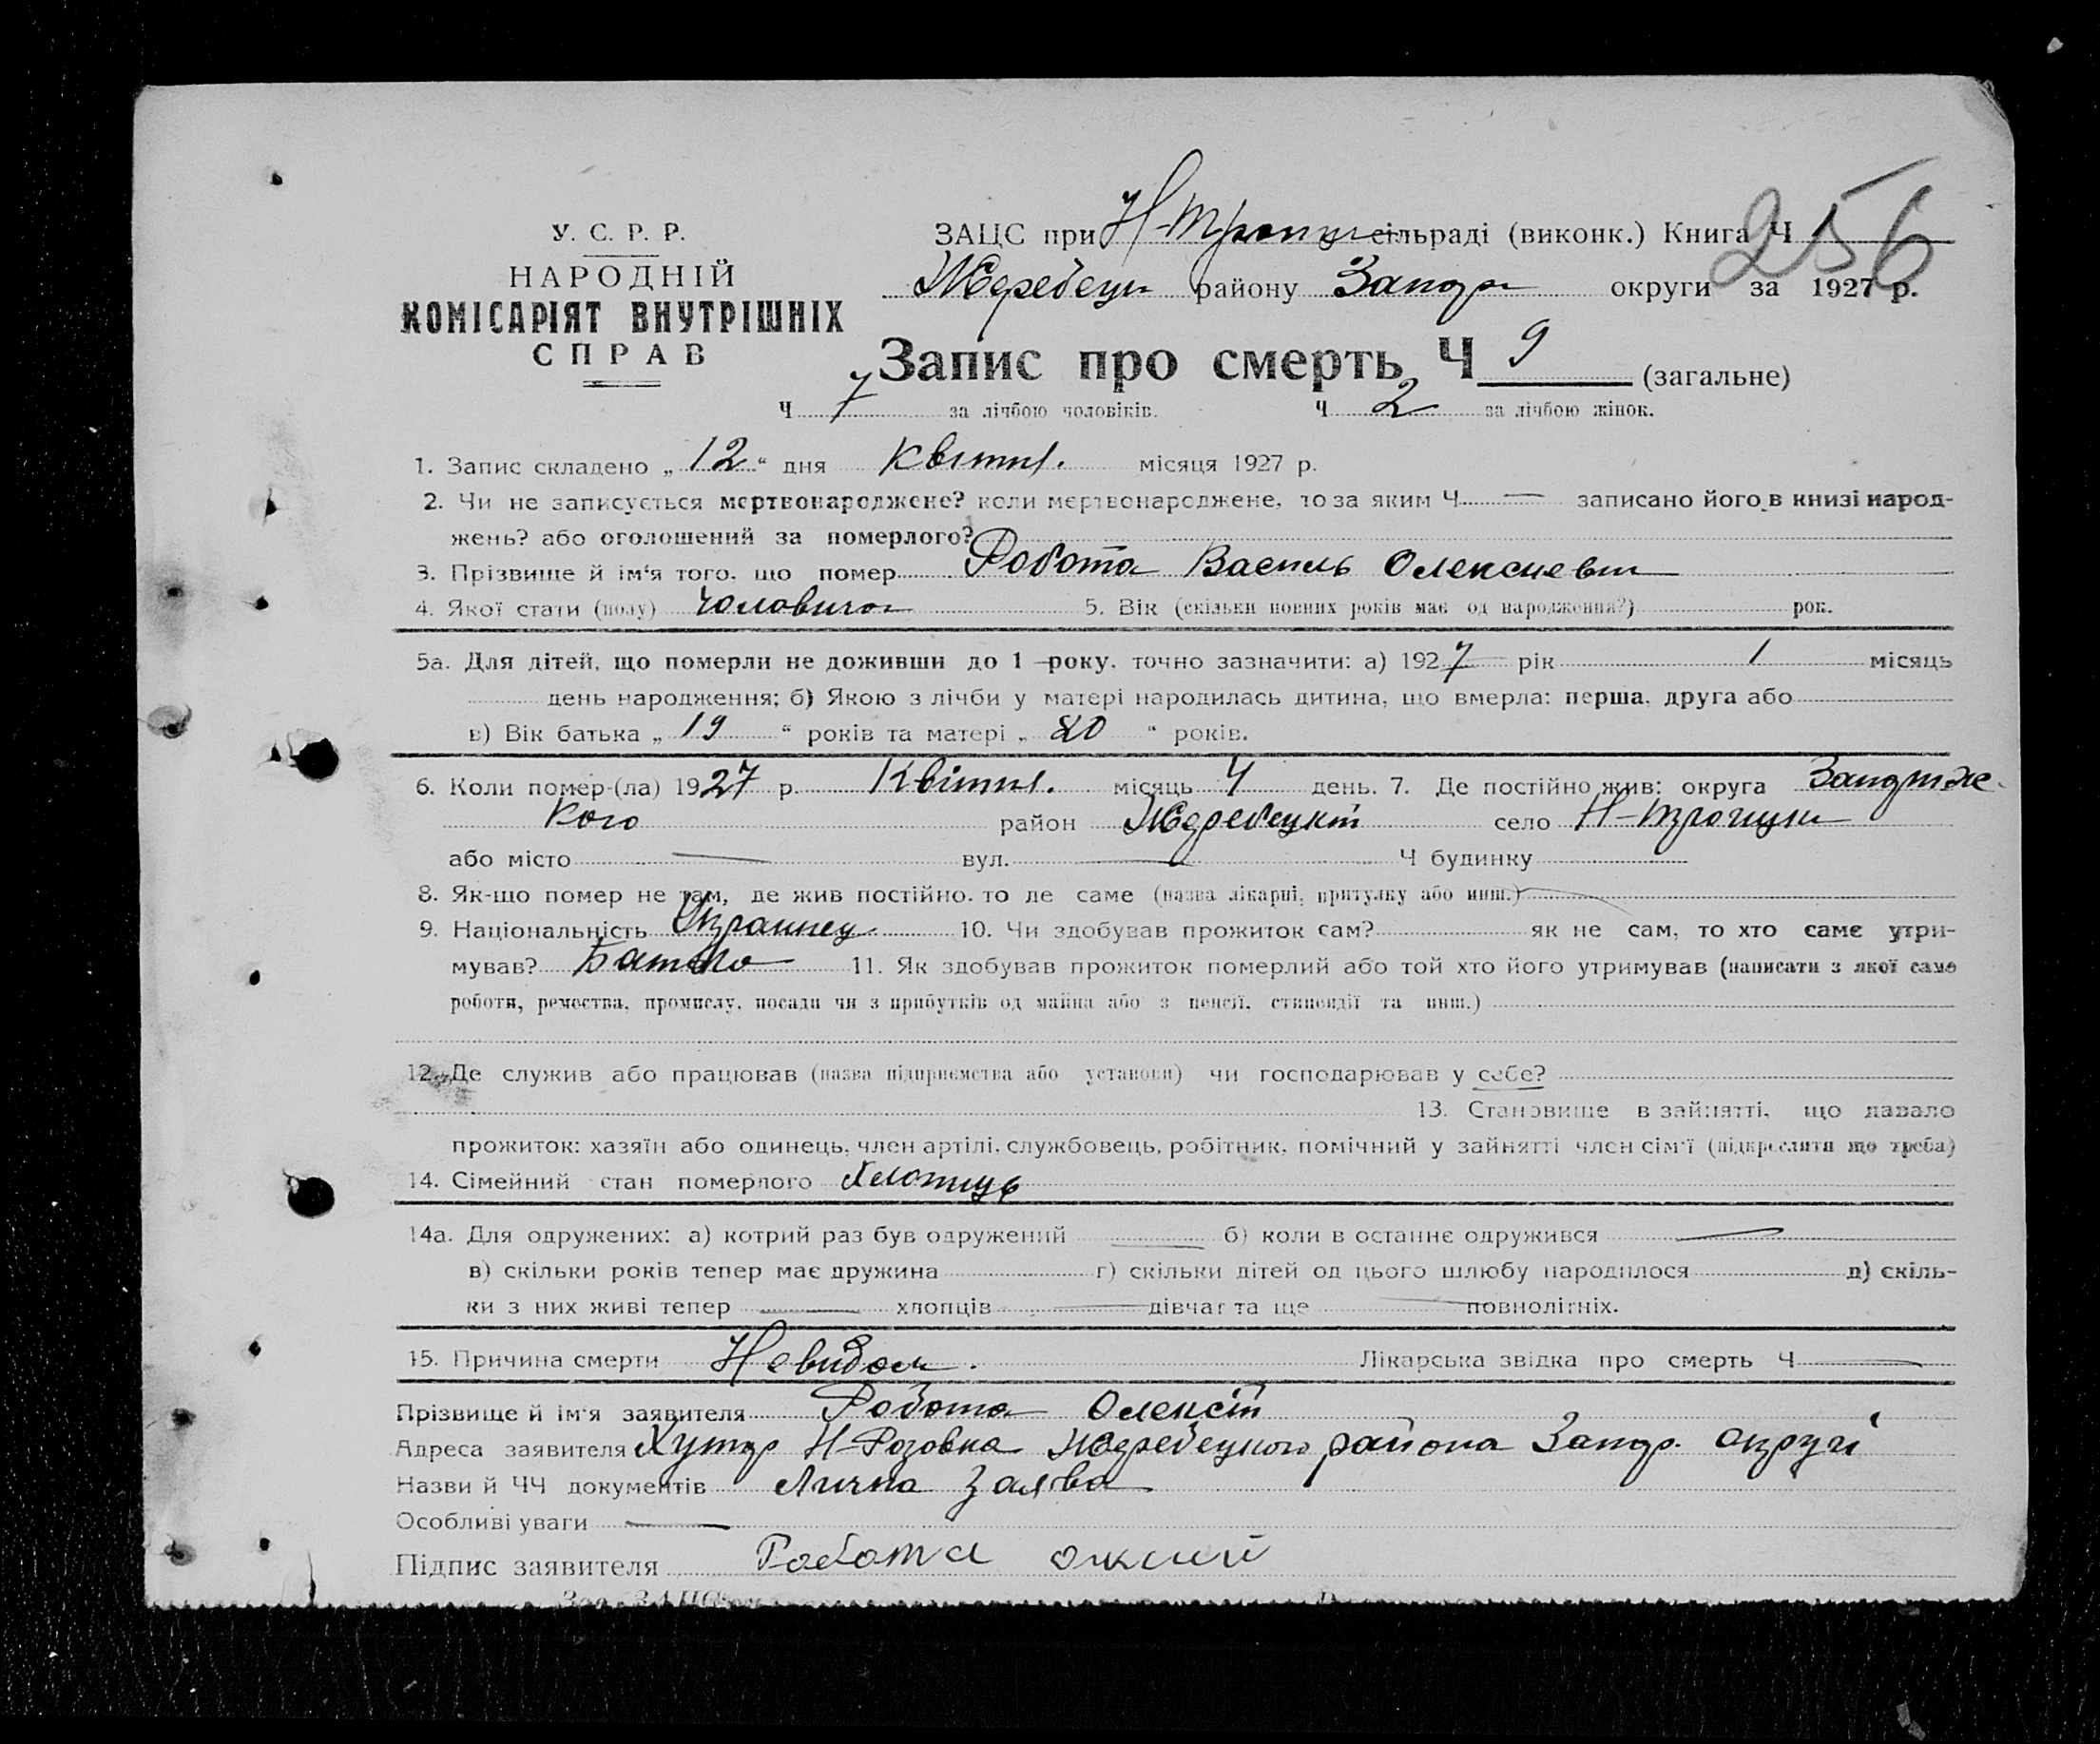 256
У. С. Р. Р.
НАРОДНІЙ
КОМІСАРІЯТ ВНУТРІШНІХ
СПРАВ
ЗАЦС при Н-Троицк сільраді (виконк.) Книга Ч
Жеребецьк району Запор округи за 1927 р.
Запис про смерть Ч 9 (загальне)
Ч 7 за лічбою чоловіків. Ч 2 за лічбою жінок.
1. Запис складено „12“ дня Квітня. місяця 1927 р.
2. Чи не записується мертвонароджене? коли мертвонароджене, то за яким Ч — записано його в книзі народ-
жень? або оголошений за померлого?
3. Прізвище й ім'я того, що помер Робота Василь Олексиевич
4. Якої стати (полу) Чоловича 5. Вік (скільки повних років має од народження?) рок.
5а. Для дітей, що померли не доживши до 1 року, точно зазначити: а) 1927 рік 1 місяць
день народження; б) Якою з лічби у матері народилась дитина, що вмерла: перша, друга або
в) Вік батька „19“ років та матері „20“ років.
6. Коли помер-(ла) 1927 р. Квітня. місяць 4 день. 7. Де постійно жив: округа Запорож-
кого район Жеребецкій село Н-Троицки
або місто — вул. — Ч будинку
8. Як-що помер не там, де жив постійно, то де саме (назва лікарні, притулку або инш.) —
9. Національність Украинец 10. Чи здобував прожиток сам? як не сам, то хто саме утри-
мував? Батько 11. Як здобував прожиток померлий або той хто його утримував (написати з якої саме
роботи, ремества, промислу, посади чи з прибутків од майна або з пенсії, стипендії та инш.)
12. Де служив або працював (назва підприємства або установи) чи господарював у себе?
13. Становище в зайнятті, що давало
прожиток: хазяїн або одинець, член артілі, службовець, робітник, помічний у зайнятті член сім'ї (підкреслити що треба)
14. Сімейний стан померлого Хлопиць
14а. Для одружених: а) котрий раз був одружений — б) коли в останнє одружився —
в) скільки років тепер має дружина г) скільки дітей од цього шлюбу народилося д) скіль-
ки з них живі тепер — хлопців — дівчат та ще — повнолітніх.
15. Причина смерти Невидом. Лікарська звідка про смерть Ч —
Прізвище й ім'я заявителя Робота Олексій
Адреса заявителя Хутор Н-Розовка Жеребецкого района Запор. округи
Назви й ЧЧ документів Лична Заява
Особливі уваги —
Підпис заявителя Робота